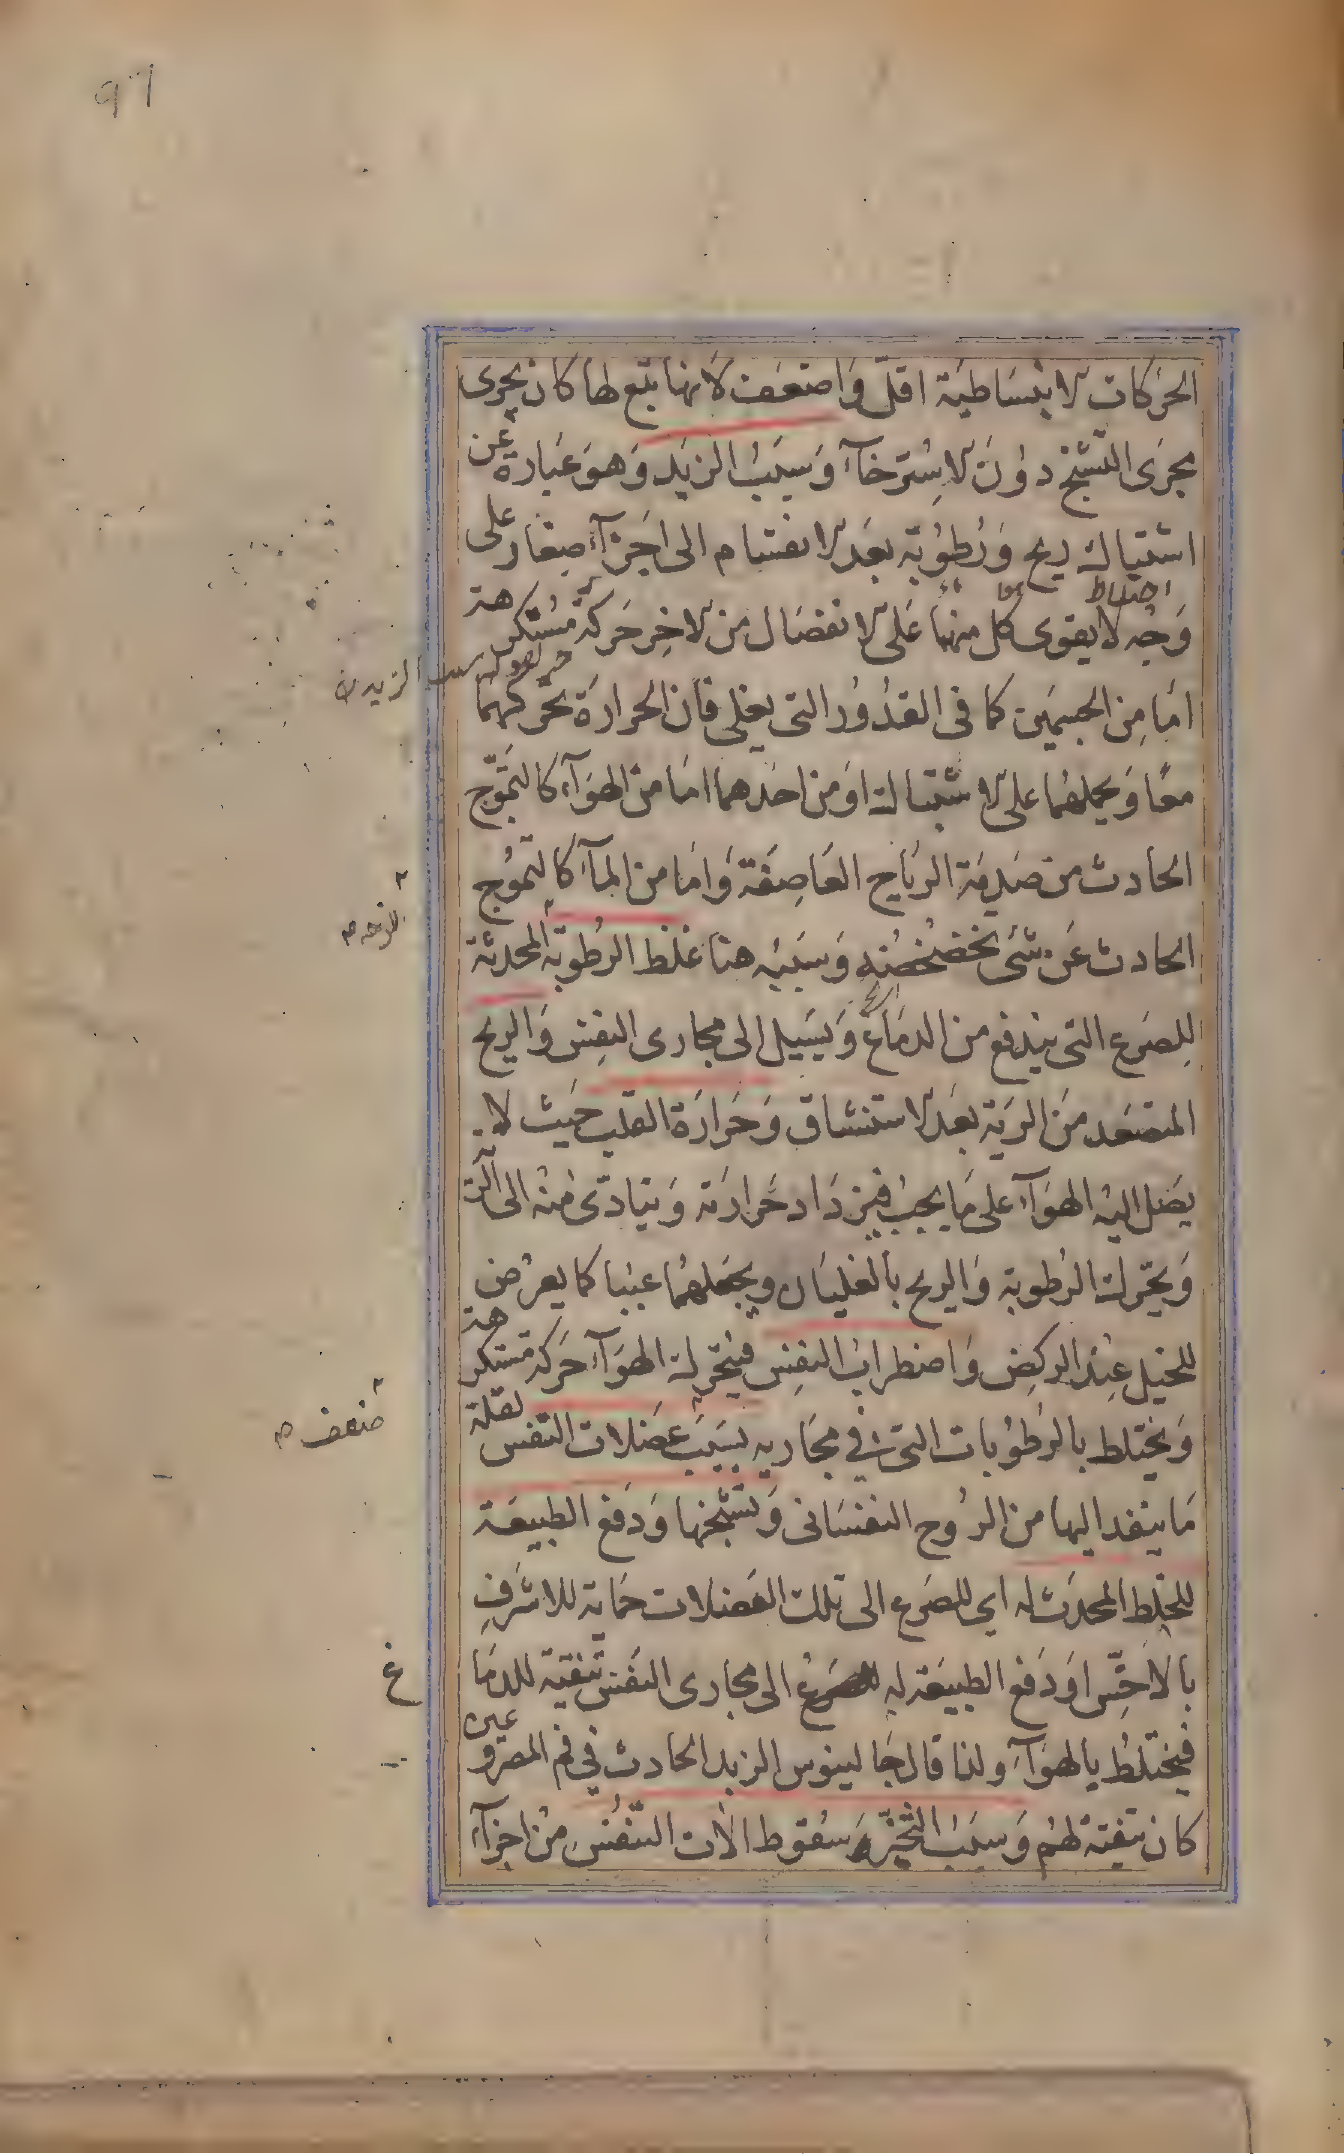 ٩٦
الحركات الانبساطية اقل واضعف لانها تتبع لها كان يجرى
مجرى التشنج دون الاسترخاء وسبب الزبد وهو عبارة عن
اشتباك ريح ورطوبة بعد الانقسام الى اجزاء صغار على
اختلاط
وجه لا يقوى كل منهما على الانفصال من الاخر حركة مستكرهة
سبب الزبد
اما من الجسمين كما فى القدور التى يغلى فان الحرارة تحركهما
معا ويحملهما على الاشتباك او من احدهما اما من الهواء كالتموج
الحادث من صدمة الرياح العاصفة واما من الماء كالتموج
الحادث عن شئ يخضخضه وسببه هنا غلظ الرطوبة المحدثة
اللزجة
للصرع التى يندفع من الدماغ ويسيل الى مجارى النفس والريح
المتصعد من الرية بعد الاستنشاق وحرارة القلب حيث لا
يصل اليه الهواء على ما يجب فيزداد حرارته ويتادى منه الى الرية
ويحرك الرطوبة والريح بالغليان ويجعلهما عببا كما يعرض
للخيل عند الركض واضطراب النفس فيتحرك الهواء حركة مستكرهة
ويختلط بالرطوبات التى فى مجاريه بسبب عضلات التنفس لقلة
ضعف
ما ينفد اليها من الروح النفسانى وتشنجها ودفع الطبيعة
للخلط المحدث له اى للصرع الى تلك العضلات حماية للاشرف
بالاخس او دفع الطبيعة له الى مجارى النفس تنقية للدماغ
فيختلط بالهواء ولذا قال جالينوس الزبد الحادث فى فم المصروعين
كان تنقية لهم وسبب التخير وسقوط الات التنفس من اجزاء